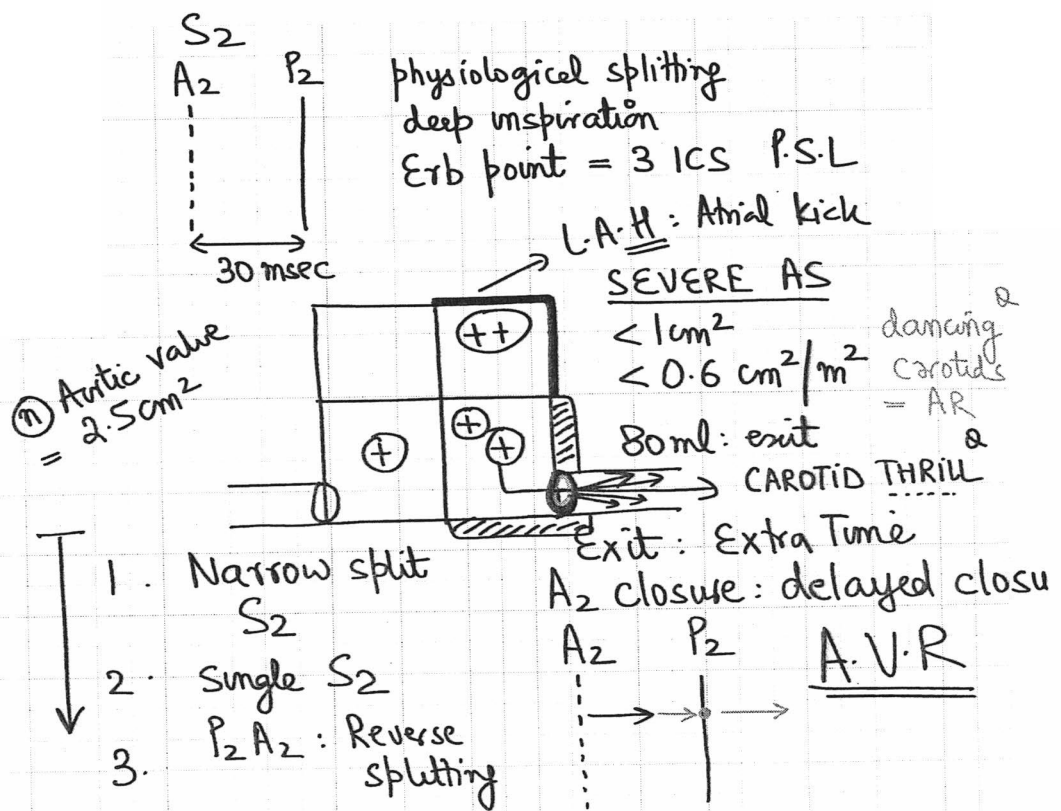 S2
A2 P2
physiological splitting
deep inspiration
Erb point = 3 ICS P.S.L
30 msec
L.A.H : Atrial kick
SEVERE AS
< 1cm²
< 0.6 cm²/m²
dancing
carotids
= AR
n Aortic valve
= 2.5cm²
++
+
+
+
80ml : exit
CAROTID THRILL
Exit : Extra Time
A2 closure : delayed closu
1. Narrow split
S2
2. Single S2
3. P2 A2 : Reverse
splitting
A2 P2
A.V.R